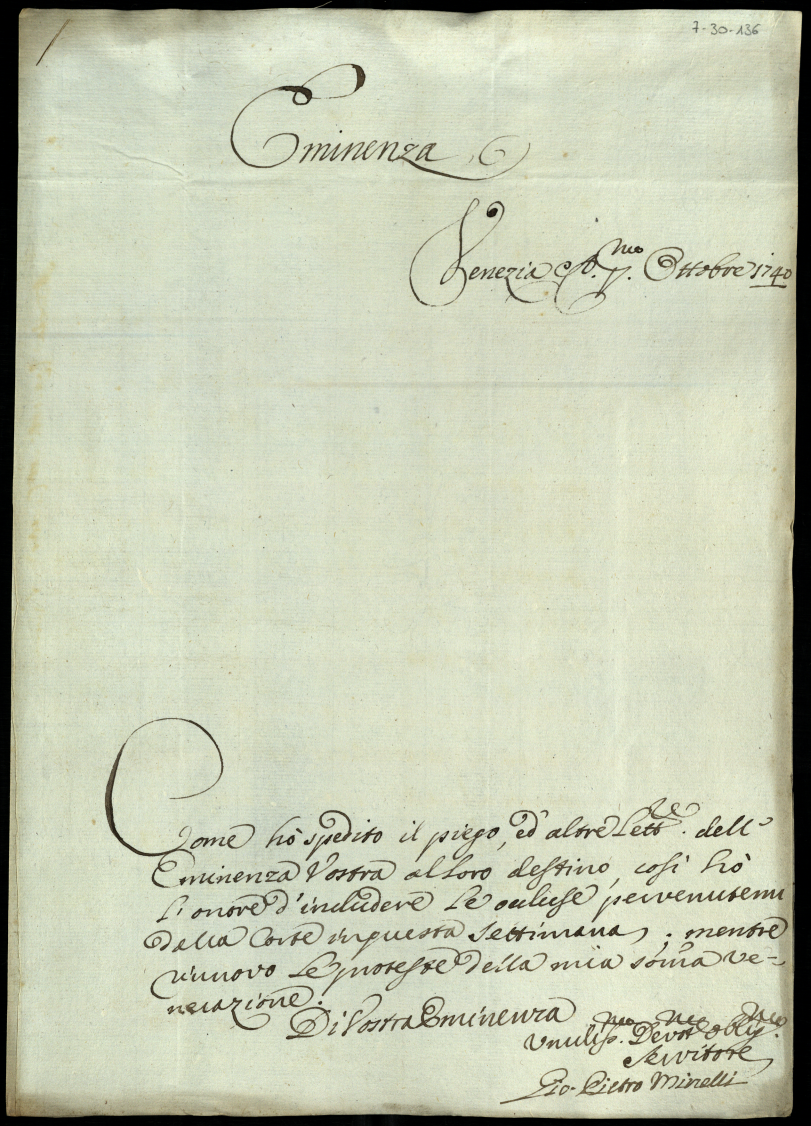 7-30-136
Eminenza
Venezia 7. Ottobre 1740
Come hò spedito il piego, ed altre Lett.re dell'
Eminenza Vostra al loro destino, così hò
l'onore d'includere le occluse pervenutemi
dalla Corte in questa Settimana; mentre
rinnovo le proteste della mia som̃a ve-
nerazione.
Di Vostra Eminenza
Umiliss.mo Devot.mo Oblig.mo
Servitore
Gio. Pietro Minelli